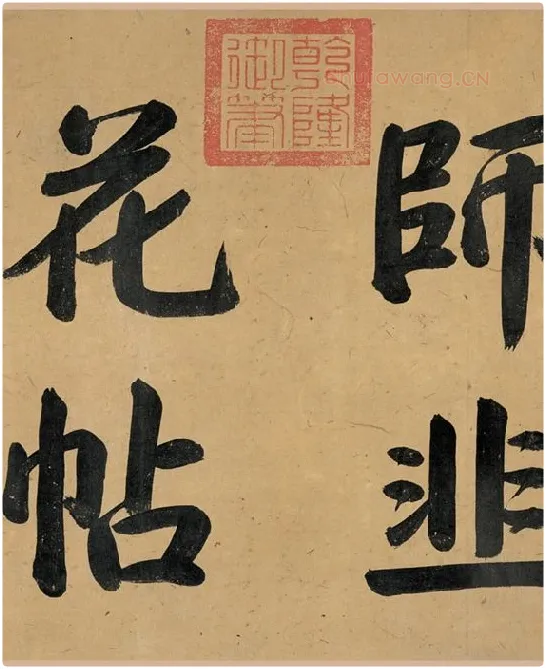 師韭
乾隆
御筆
花帖
shufawang.CN